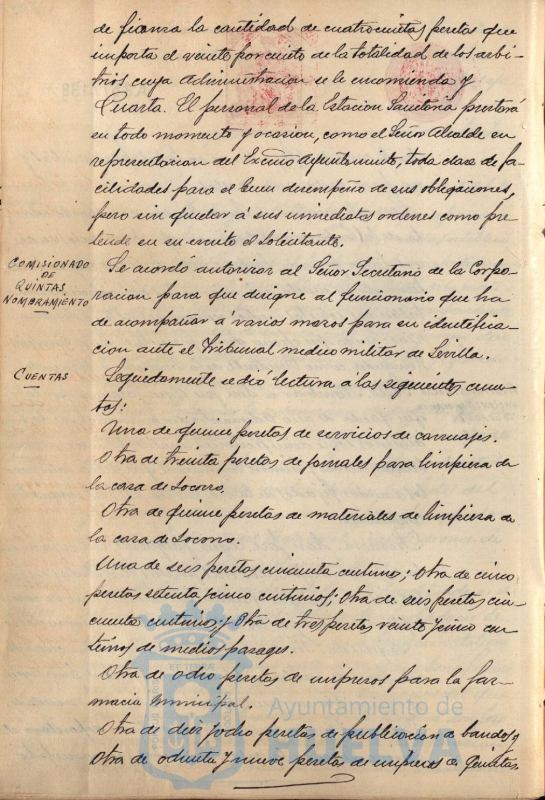 de fianza la cantidad de cuatrocientas pesetas que
importa el veinte por ciento de la totalidad de los arbi-
trios cuya administracion se le encomienda y
Cuarta. El personal de la Estacion Sanitaria prestará
en todo momento y ocasion, como el Señor Alcalde en
representacion del Excmo Ayuntamiento, toda clase de fa-
cilidades para el buen desempeño de sus obligaciones,
pero sin quedar á sus inmediatas ordenes como pre-
tende en su escrito el solicitante.
COMISIONADO
DE
QUINTAS
NOMBRAMIENTO
Se acordó autorizar al Señor Secretario de la Corpo-
racion para que designe al funcionario que ha
de acompañar á varios mozos para su identifica-
cion ante el Tribunal medico militar de Sevilla.
CUENTAS
Seguidamente se dió lectura á las siguientes cuen-
tas:
Una de quince pesetas de servicios de carruajes.
Otra de treinta pesetas de jornales para limpieza de
la casa de Socorro.
Otra de quince pesetas de materiales de limpieza de
la casa de Socorro.
Una de seis pesetas cincuenta centimos; Otra de cinco
pesetas setenta y cinco centimos; Otra de seis pesetas cin-
cuenta centimos y Otra de tres pesetas veinte y cinco cen-
timos de medios pasages.
Otra de ocho pesetas de impresos para la far-
macia Municipal.
Otra de diez y ocho pesetas de publicacion de bandos y
Otra de ochenta y nueve pesetas de impresos de Quintas
Ayuntamiento de
HUELVA